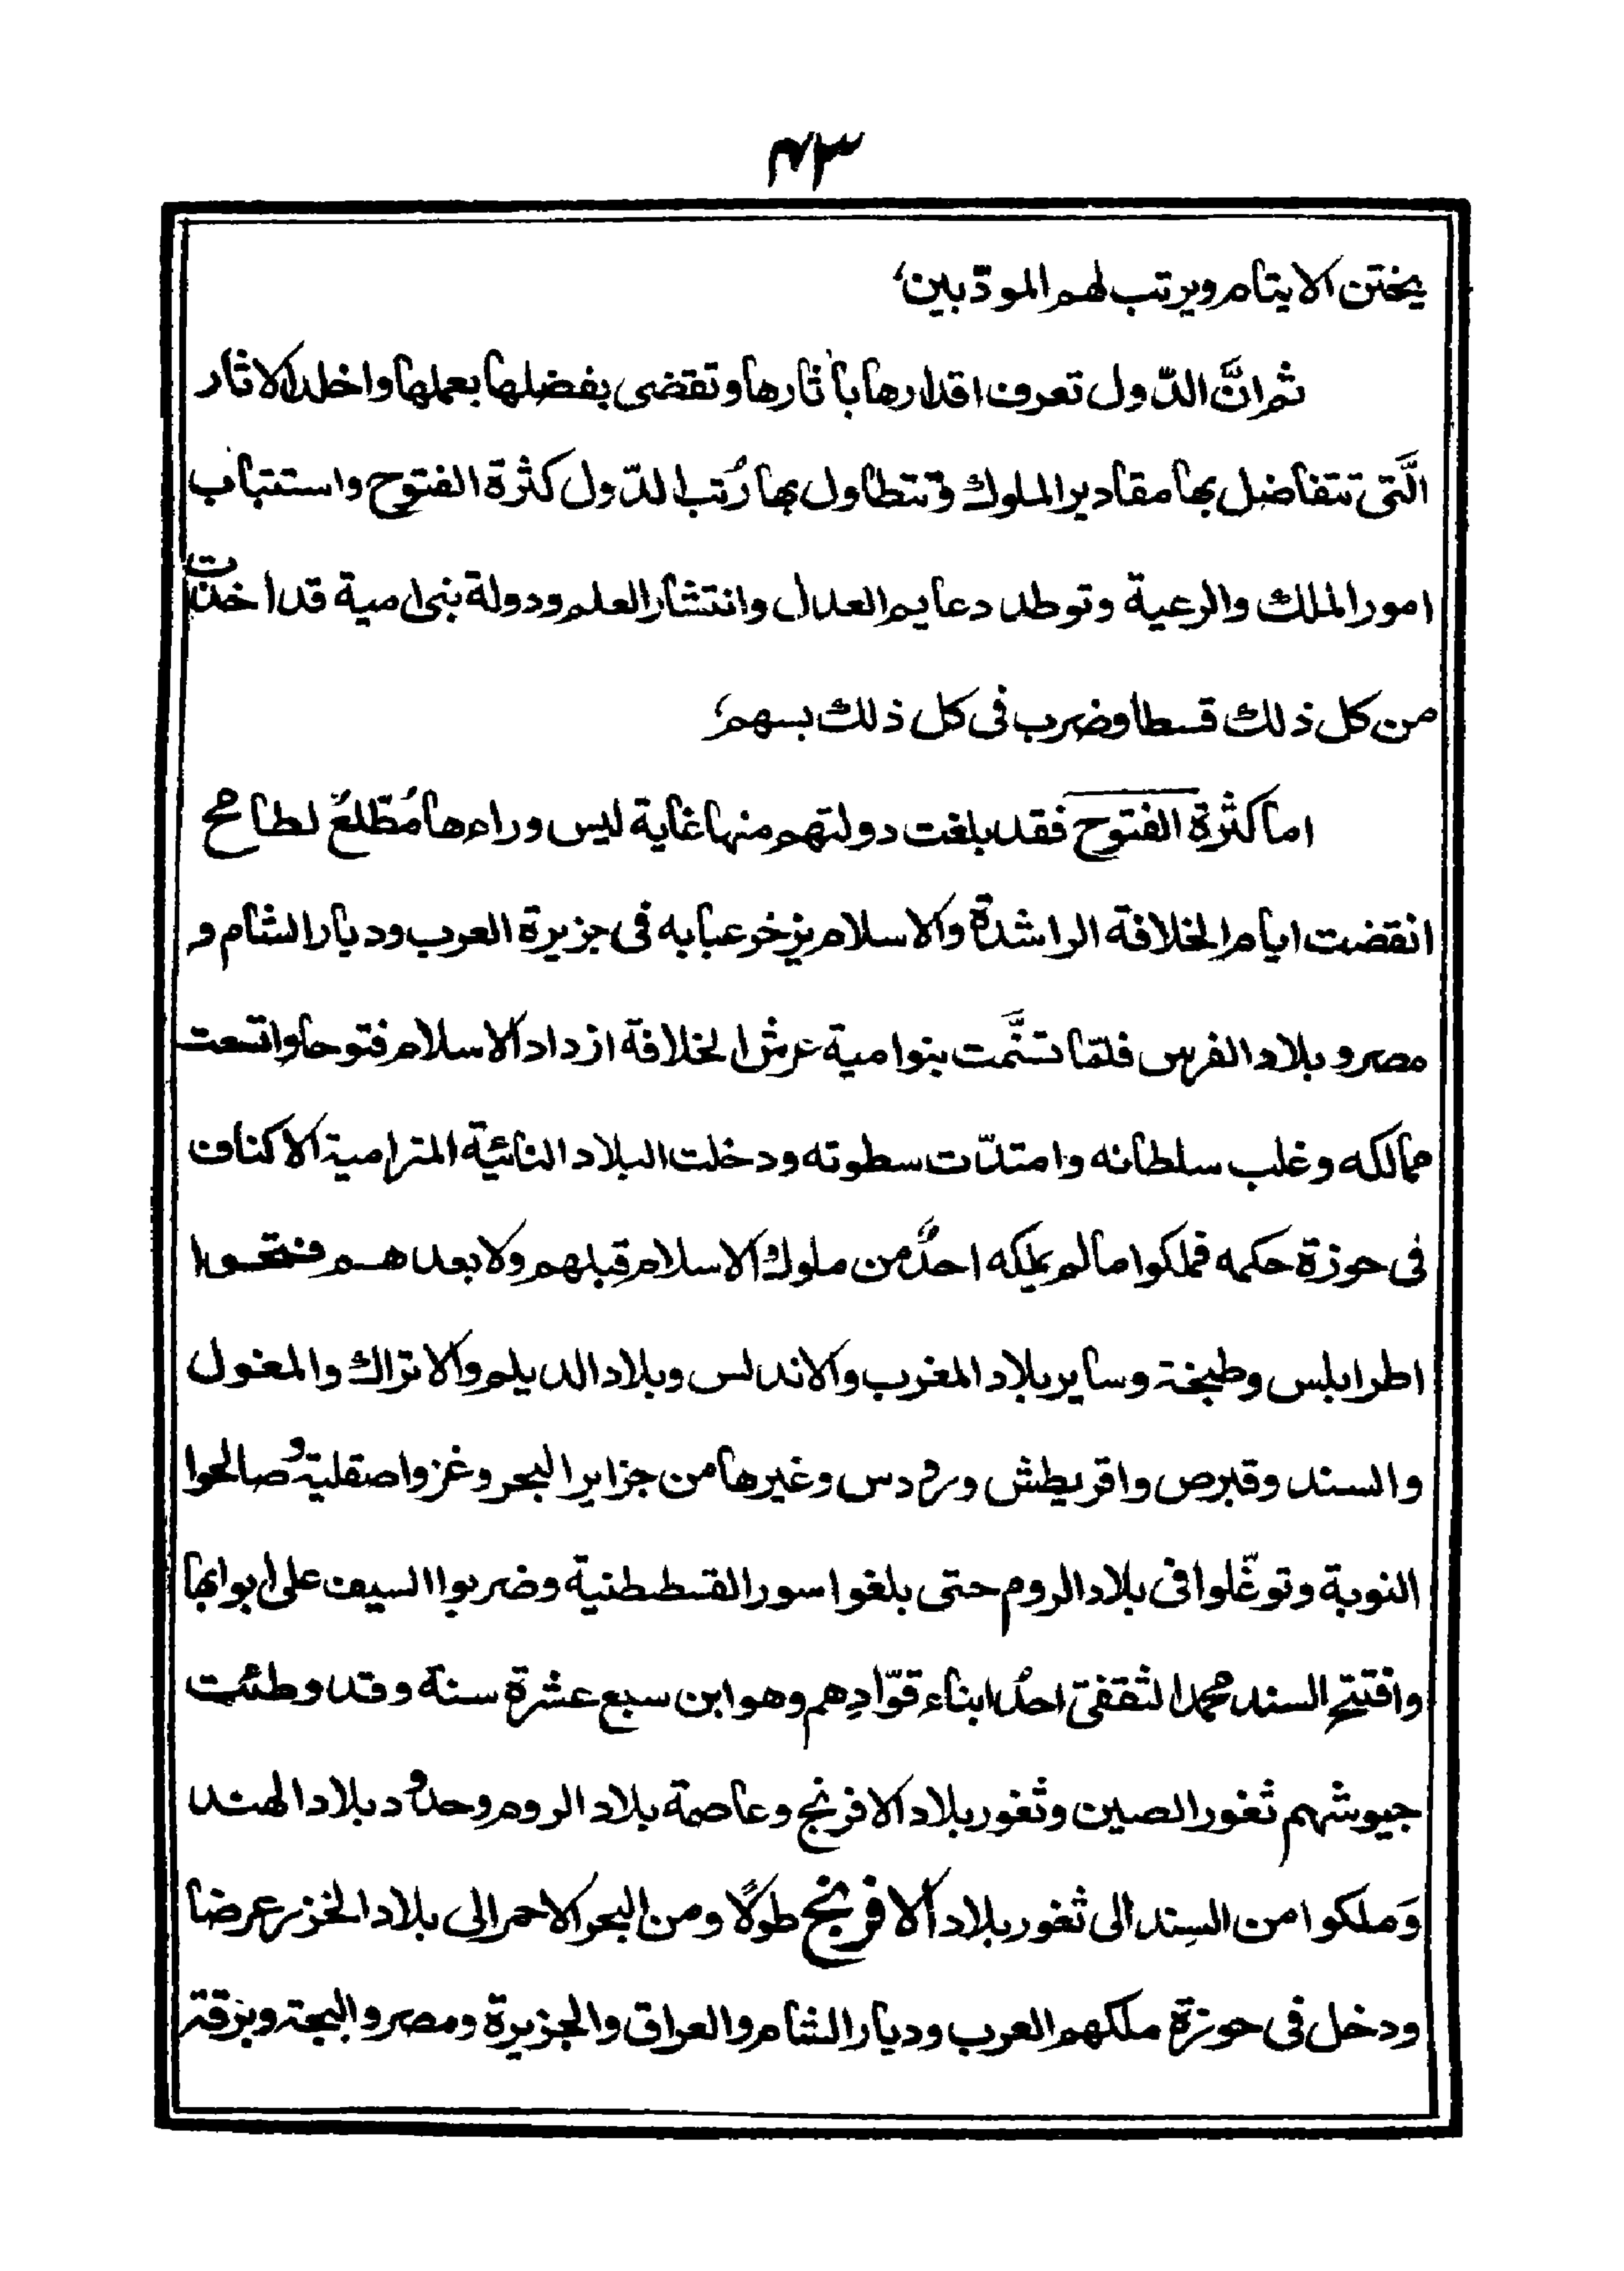 ٤٣
يختن الايتام ويرتب لهم المودّبين،
ثم انَّ الدّول تعرف اقدارها بآثارها وتقضى بفضلها بعملها واخلد الاثار
الَّتى تتفاضل بها مقادير الملوك وتتطاول بها رُتب الدّول كثرة الفتوح واستتباب
امور الملك والرعية وتوطد دعايم العدل وانتشار العلم ودولة بنى امية قد اخذت
من كل ذلك قسطا وضرب فى كل ذلك بسهم،
اما كثرة الفتوح فقد بلغت دولتهم منها غاية ليس وراءها مُطَّلعٌ لطامح
انقضت ايام الخلافة الراشدة والاسلام يزخر عبابه فى جزيرة العرب وديار الشام و
مصر وبلاد الفرس فلمّا تسنَّمت بنوامية عرش الخلافة ازداد الاسلام فتوحا واتسعت
ممالكه وغلب سلطانه وامتدّت سطوته ودخلت البلاد النائية المترامية الاكناف
فى حوزة حكمه فملكوا مالم يملكه احدٌ من ملوك الاسلام قبلهم ولا بعد هم ففتحوا
اطرابلس وطبخة وساير بلاد المغرب والاندلس وبلاد الديلم والاتراك والمغول
والسند وقبرص واقريطش وردس وغيرها من جزاير البحر وغزوا صقلية وصالحوا
النوبة وتوغّلوا فى بلاد الروم حتى بلغوا سور القسطنطنية وضربوا السيف على ابوابها
وافتتح السند محمد الثقفىّ احدُ ابناء قوّادِهم وهو ابن سبع عشرة سنة وقد وطئت
جيوشهم ثغور الصين وثغور بلاد الافرنج وعاصمة بلاد الروم وحدود بلاد الهند
وَملكوا من السِند الى ثغور بلاد الافرنج طولًا ومن البحر الاحمر الى بلاد الخزر عرضا
ودخل فى حوزة ملكهم العرب وديار الشام والعراق والجزيرة ومصر والبجة وبرقة